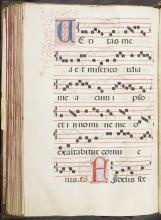 UE ri tas me
a et miserico rdia
me a cum i pso
et i n nomi ne me o
exaltabitur cornu e
ius. Ps. Fidelis ser